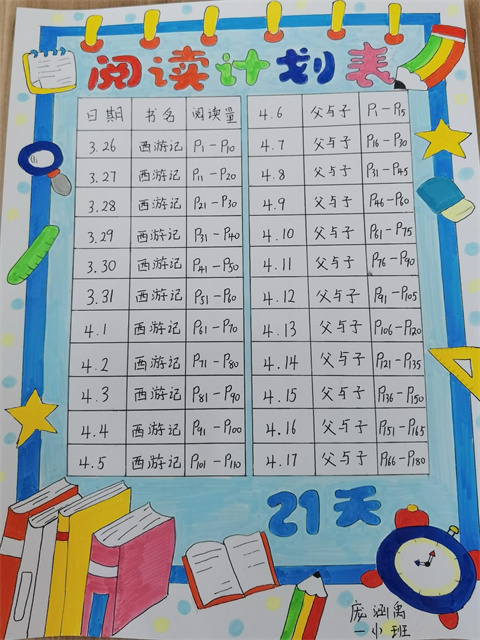 阅读计划表
日期 书名 阅读量
3.26 西游记 P1-P10
3.27 西游记 P11-P20
3.28 西游记 P21-P30
3.29 西游记 P31-P40
3.30 西游记 P41-P50
3.31 西游记 P51-P60
4.1 西游记 P61-P70
4.2 西游记 P71-P80
4.3 西游记 P81-P90
4.4 西游记 P91-P100
4.5 西游记 P101-P110
4.6 父与子 P1-P15
4.7 父与子 P16-P30
4.8 父与子 P31-P45
4.9 父与子 P46-P60
4.10 父与子 P61-P75
4.11 父与子 P76-P90
4.12 父与子 P91-P105
4.13 父与子 P106-P120
4.14 父与子 P121-P135
4.15 父与子 P136-P150
4.16 父与子 P151-P165
4.17 父与子 P166-P180
21天
庞 禹
一小班